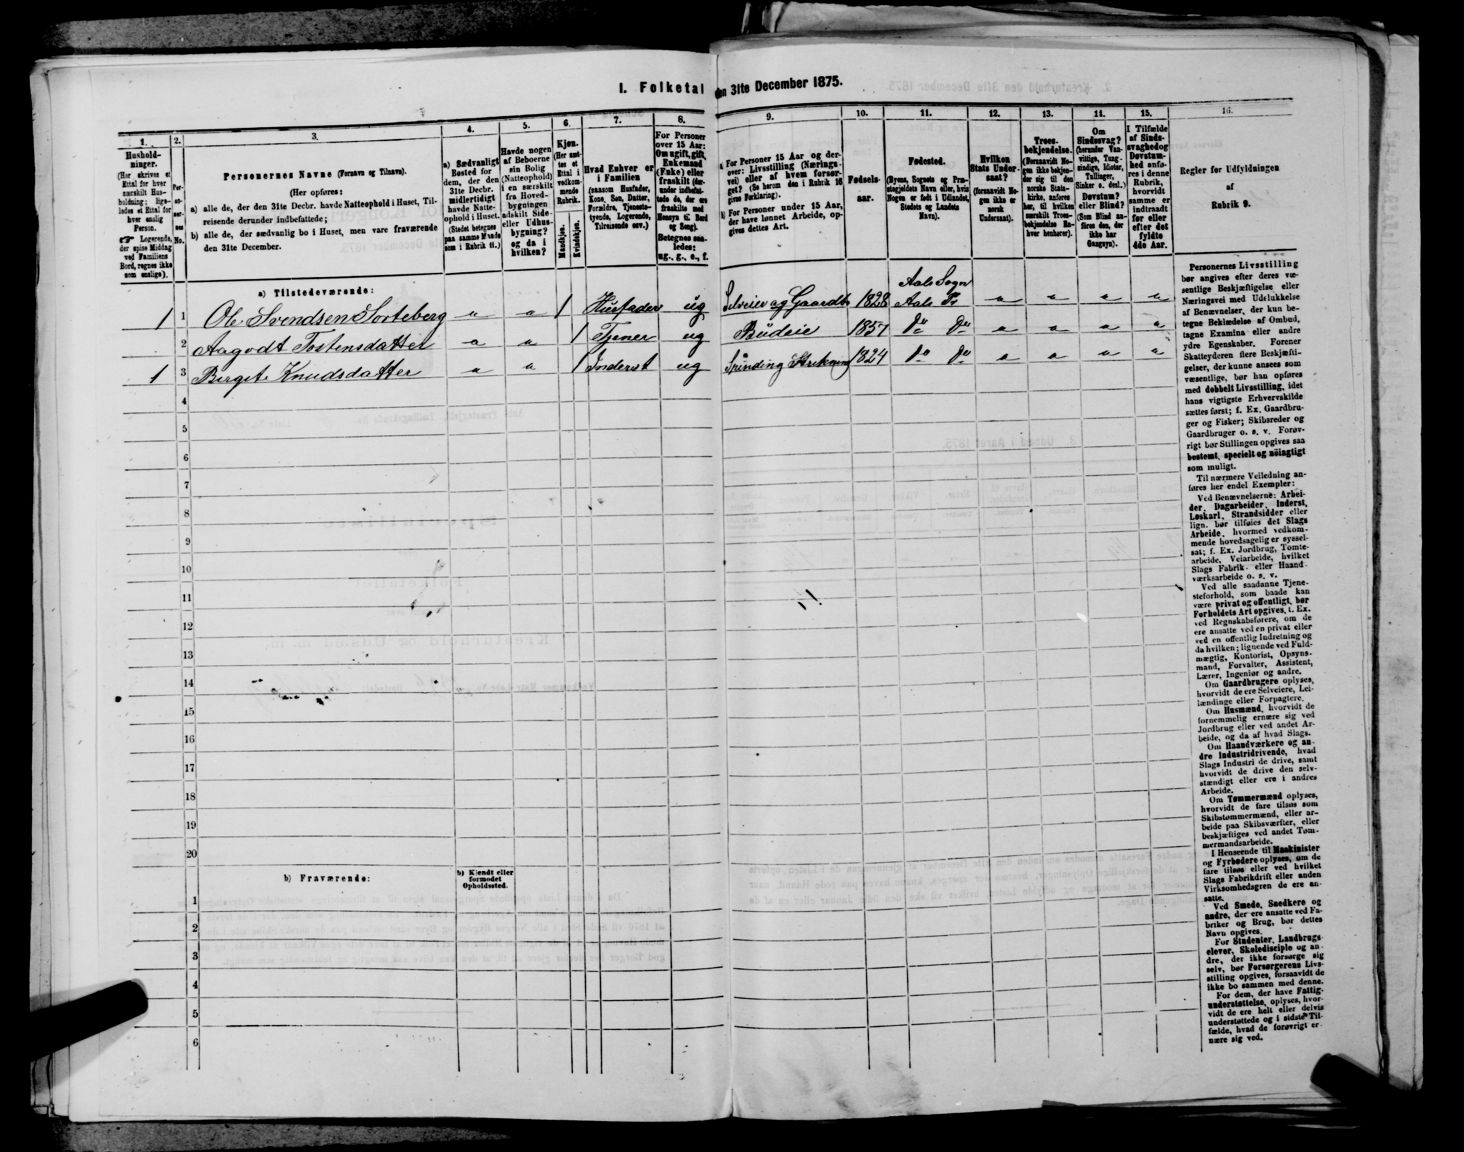 I. Folketal den 31te December 1875.
1.
Hushold-
ninger.
(Her skrives et
Ettal for hver
særskilt Hus-
holdning; lige-
ledes et Ettal for
hver enslig
Person.
☞ Logerende,
der spise Middag
ved Familiens
Bord, regnes ikke
som enslige).
2.
Per-
so-
ner-
nes
No.
3.
Personernes Navne (Fornavn og Tilnavn).
(Her opføres:
a) alle de, der den 31te Decbr. havde Natteophold i Huset, Til-
reisende derunder indbefattede;
b) alle de, der sædvanlig bo i Huset, men vare fraværende
den 31te December.
4.
a) Sædvanligt
Bosted for
dem, der den
31te Decbr.
midlertidigt
havde Natte-
ophold i Huset.
(Stedet betegnes
paa samme Maade
som i Rubrik 11.)
5.
Havde nogen
af Beboerne
sin Bolig
(Natteophold)
i en særskilt
fra Hoved-
bygningen
adskilt Side-
eller Udhus-
bygning?
og da i
hvilken?
6.
Kjøn.
(Her sæt-
tes et
Ettal i
vedkom-
mende
Rubrik.
Mandkjøn.
Kvindekjøn.
7.
Hvad Enhver er
i Familien
(saasom Husfader,
Kone, Søn, Datter,
Forældre, Tjeneste-
tyende, Logerende,
Tilreisende osv.)
8.
For Personer
over 15 Aar:
Om ugift, gift,
Enkemand
(Enke) eller
fraskilt (der-
under indbefat-
tede de, der ere
fraskilte med
Hensyn til Bord
og Seng).
Betegnes saa-
ledes:
ug., g., e., f.
9.
a) For Personer 15 Aar og der-
over: Livsstilling (Nærings-
vei) eller af hvem forsør-
get? (Se herom den i Rubrik 16
givne Forklaring).
b) For Personer under 15 Aar,
der have lønnet Arbeide, op-
gives dettes Art.
10.
Fødsels-
aar.
11.
Fødested.
(Byens, Sognets og Præ-
stegjeldets Navn eller, hvis
Nogen er født i Udlandet,
Stedets og Landets
Navn).
12.
Hvilken
Stats Under-
saat?
(forsaavidt No-
gen ikke er
norsk
Undersaat).
13.
Troes-
bekjendelse.
(Forsaavidt No-
gen ikke bekjen-
der sig til den
norske Stats-
kirke, anføres
her, til hvilken
særskilt Troes-
bekjendelse En-
hver henhører).
14.
Om
Sindssvag?
(herunder Van-
vittige, Tung-
sindige, Idioter,
Tullinger,
Sinker o. desl.)
Døvstum?
eller Blind?
(Som Blind an-
føres den, der
ikke har
Gangsyn).
15.
I Tilfælde
af Sinds-
svaghed og
Døvstum-
hed anfø-
res i denne
Rubrik,
hvorvidt
samme er
indtraadt
før eller
efter det
fyldte
4de Aar.
16.
Regler for Udfyldningen
af
Rubrik 9.
a) Tilstedeværende:
Aals Sogn
1 1 Ole Svendsen Sorteberg " " 1 Husfader ug Selveier og Gaardb 1828 Aals Pr " " " "
2 Aagodt Tostensdatter " " 1 Tjener ug Budeie 1857 Do Do " " " "
1 3 Birgit Knudsdatter " " 1 Inderst ug Spinding Strikning 1824 Do Do " " " "
4
5
6
7
8
9
10
11
12
13
14
15
16
17
18
19
20
b) Fraværende:
b) Kjendt eller
formodet
Opholdssted.
1
2
3
4
5
6
Personernes Livsstilling
bør angives efter deres væ-
sentlige Beskjæftigelse eller
Næringsvei med Udelukkelse
af Benævnelser, der kun be-
tegne Beklædelse af Ombud,
tagne Examina eller andre
ydre Egenskaber. Forener
Skatteyderen flere Beskjæfti-
gelser, der kunne ansees som
væsentlige, bør han opføres
med dobbelt Livsstilling, idet
hans vigtigste Erhvervskilde
sættes først; f. Ex. Gaardbru-
ger og Fisker; Skibsreder og
Gaardbruger o. s. v. Forøv-
rigt bør Stillingen opgives saa
bestemt, specielt og nöiagtigt
som muligt.
Til nærmere Veiledning an-
føres her endel Exempler:
Ved Benævnelserne: Arbei-
der, Dagarbeider, Inderst,
Løskarl, Strandsidder eller
lign. bør tilføies det Slags
Arbeide, hvormed vedkom-
mende hovedsagelig er syssel-
sat; f. Ex. Jordbrug, Tomte-
arbeide, Veiarbeide, hvilket
Slags Fabrik- eller Haand-
værksarbeide o. s. v.
Ved alle saadanne Tjene-
steforhold, som baade kan
være privat og offentligt, bør
Forholdets Art opgives, f. Ex.
ved Regnskabsførere, om de
ere ansatte ved en privat eller
ved en offentlig Indretning og
da hvilken; lignende ved Fuld-
mægtig, Kontorist, Opsyns-
mand, Forvalter, Assistent,
Lærer, Ingeniør og andre.
Om Gaardbrugere oplyses,
hvorvidt de ere Selveiere, Lei-
lændinge eller Forpagtere.
Om Husmænd, hvorvidt de
fornemmelig ernære sig ved
Jordbrug eller ved andet Ar-
beide, og da af hvad Slags.
Om Haandværkere og an-
dre Industridrivende, hvad
Slags Industri de drive, samt
hvorvidt de drive den selv-
stændigt eller ere i andres
Arbeide.
Om Tømmermænd oplyses,
hvorvidt de fare tilsøs som
Skibstømmermænd, eller ar-
beide paa Skibsværfter, eller
beskjæftiges ved andet Tøm-
mermandsarbeide.
I Henseende til Maskinister
og Fyrbødere oplyses, om de
fare tilsøs eller ved hvilket
Slags Fabrikdrift eller anden
Virksomhedsgren de ere an-
satte.
Ved Smede, Snedkere og
andre, der ere ansatte ved Fa-
briker og Brug, bør dettes
Navn opgives.
For Studenter, Landbrugs-
elever, Skoledisciple og an-
dre, der ikke forsørge sig
selv, bør Forsørgerens Livs-
stilling opgives, forsaavidt de
ikke bo sammen med denne.
For dem, der have Fattig-
understøttelse, oplyses, hvor-
vidt de ere helt eller delvis
understøttede og i sidste Til-
fælde, hvad de forøvrigt er-
nære sig ved.